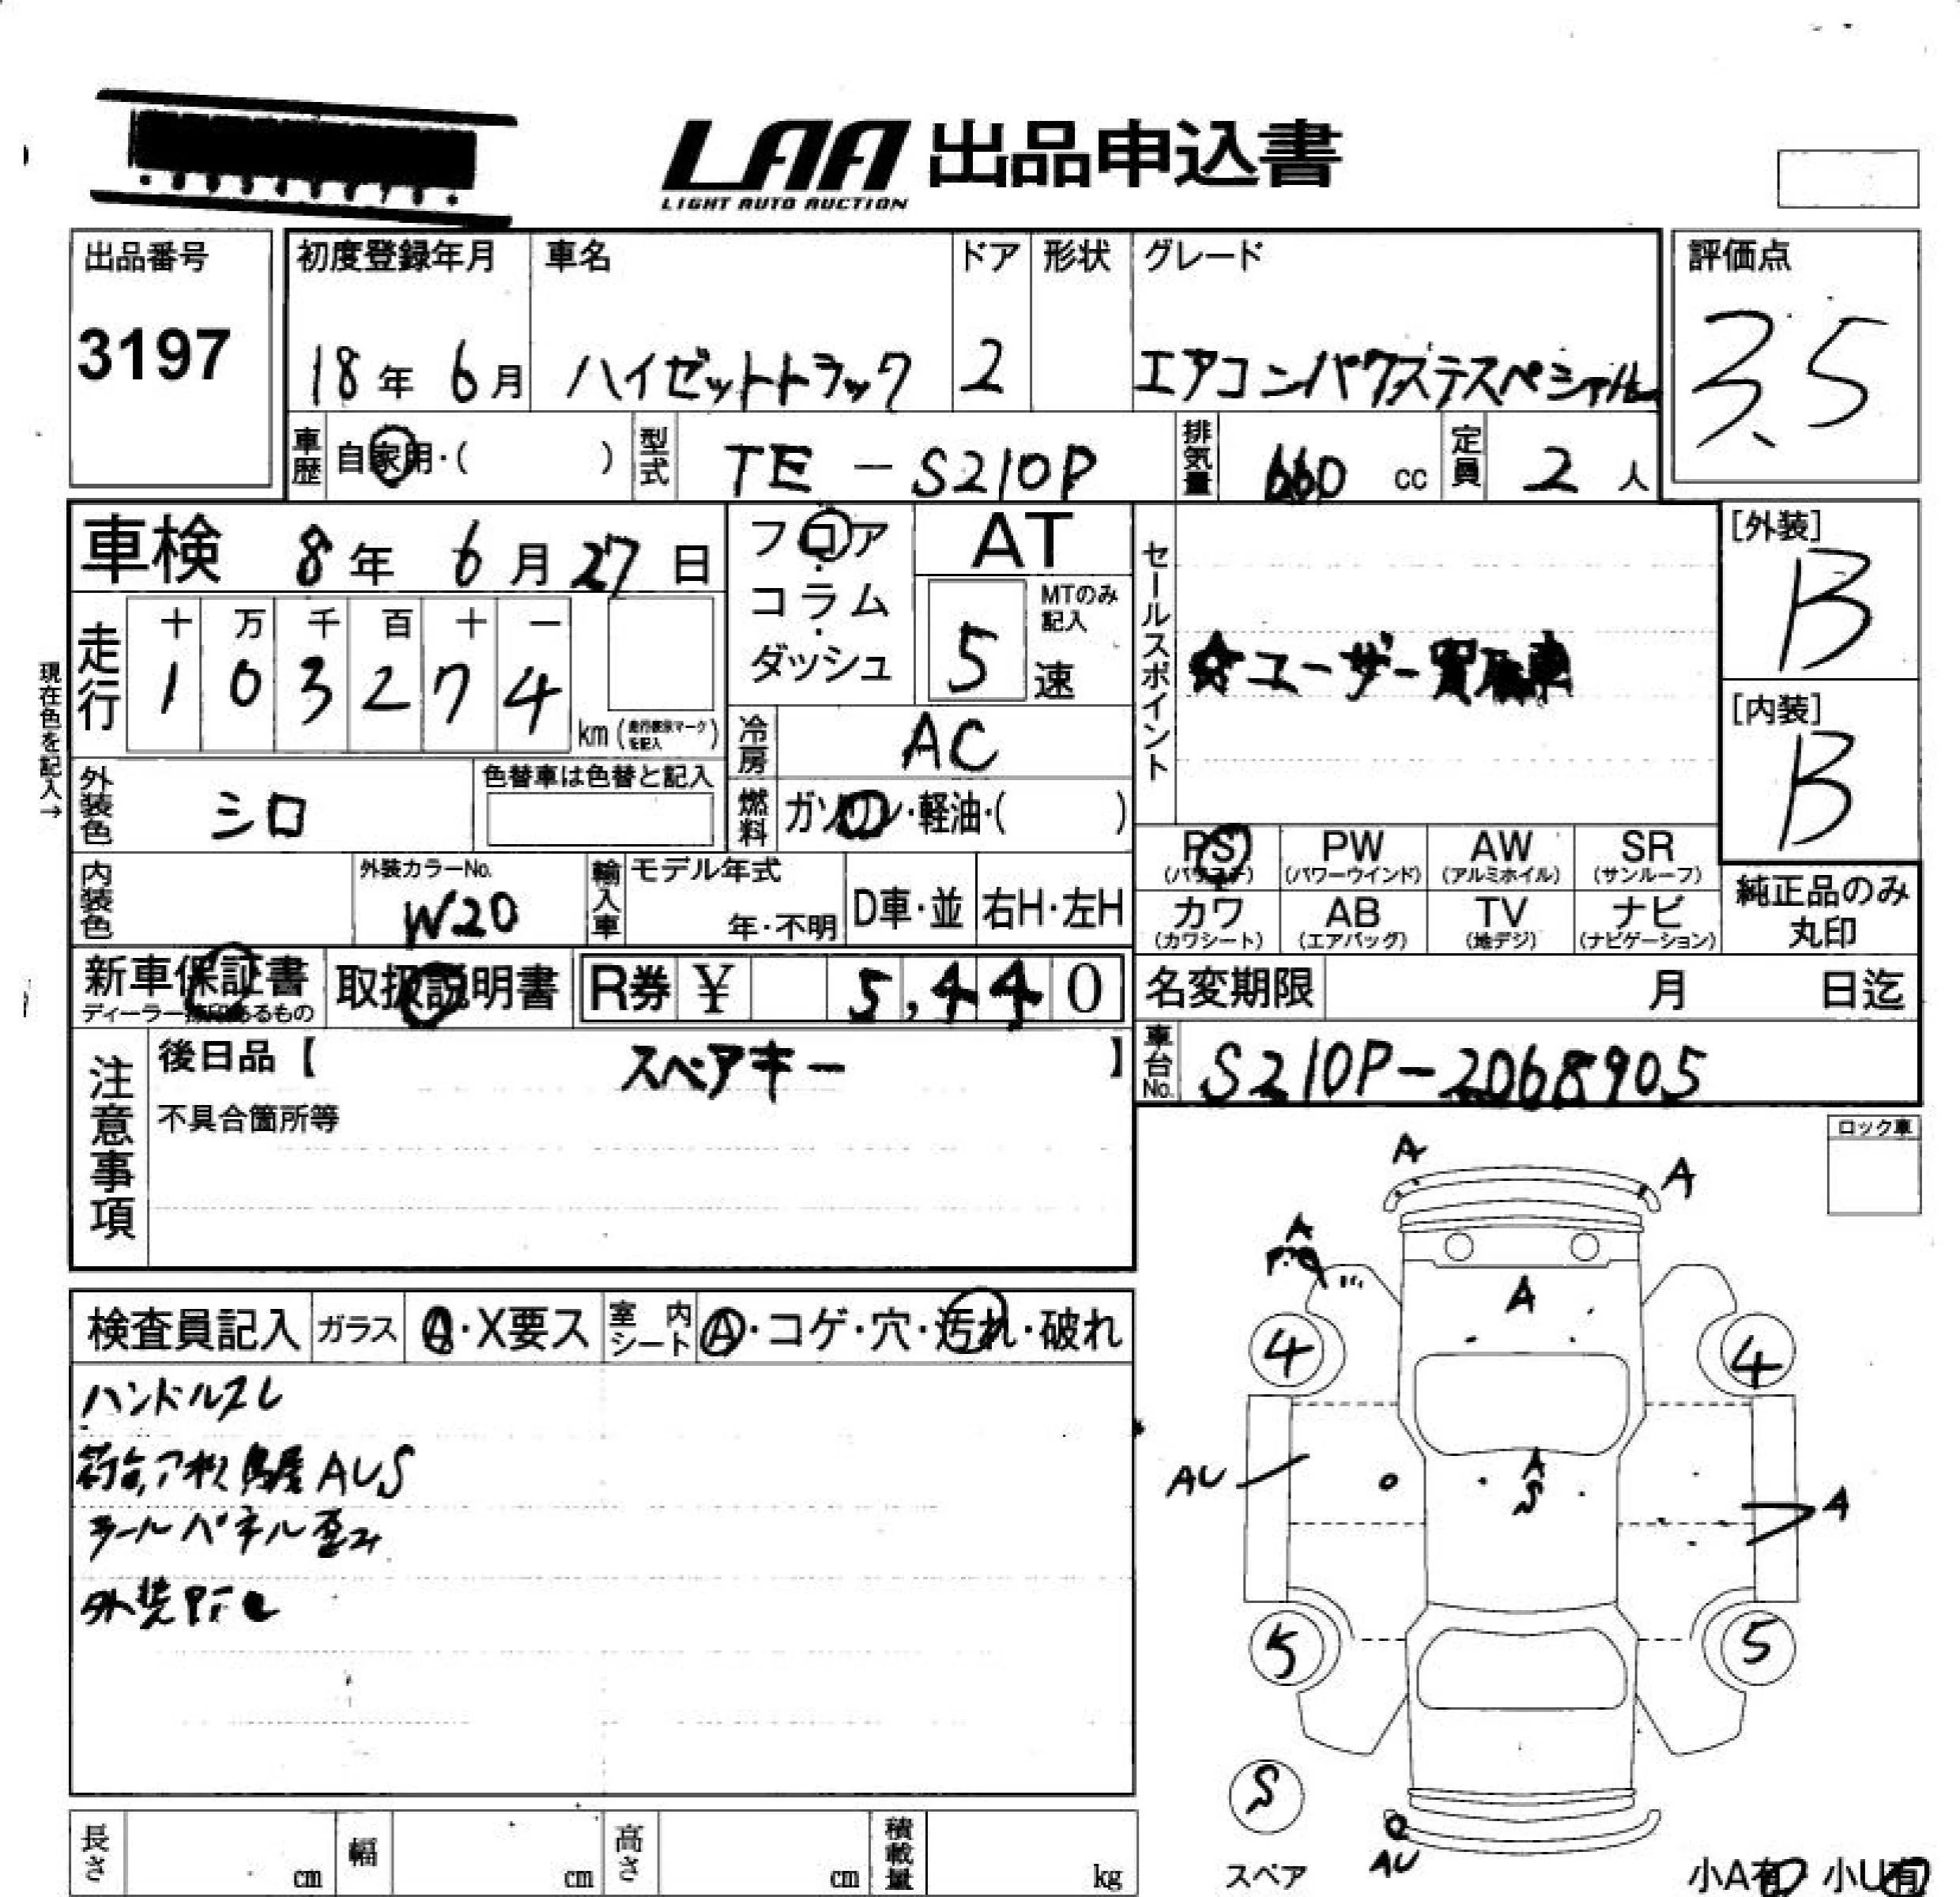 LAA 出品申込書
LIGHT AUTO AUCTION
出品番号
3197
初度登録年月
18年 6月
車名
ハイゼットトラック
ドア
2
形状
グレード
エアコンパワステスペシャル
評価点
3.5
車歴
自家用・( )
型式
TE-S210P
排気量
660 cc
定員
2 人
車検 8年 6月 27日
フロア・コラム・ダッシュ
AT
MTのみ記入
5 速
セールスポイント
☆ユーザー買取車
[外装]
B
[内装]
B
現在色を記入→
走行
十 万 千 百 十 一
1 0 3 2 7 4
km
冷房
AC
外装色
シロ
色替車は色替と記入
燃料
ガソリン・軽油・( )
内装色
外装カラーNo.
W20
輸入車
モデル年式
年・不明
D車・並
右H・左H
PS
(パワステ)
PW
(パワーウインド)
AW
(アルミホイル)
SR
(サンルーフ)
カワ
(カワシート)
AB
(エアバッグ)
TV
(地デジ)
ナビ
(ナビゲーション)
純正品のみ
丸印
新車保証書
取扱説明書
R券 ¥ 5,440
名変期限 月 日迄
車台No.
S210P-2068905
注意事項
後日品【 スペアキー 】
不具合箇所等
ロック車
検査員記入
ガラス
A・X要ス
室内シート
A・コゲ・穴・汚れ・破れ
ハンドルスレ
AUS
パネル歪み
外装
A
A
A
A
4
4
AU
A
S
A
5
5
S
スペア
AU
小A有 小U有
長さ cm
幅 cm
高さ cm
積載量 kg